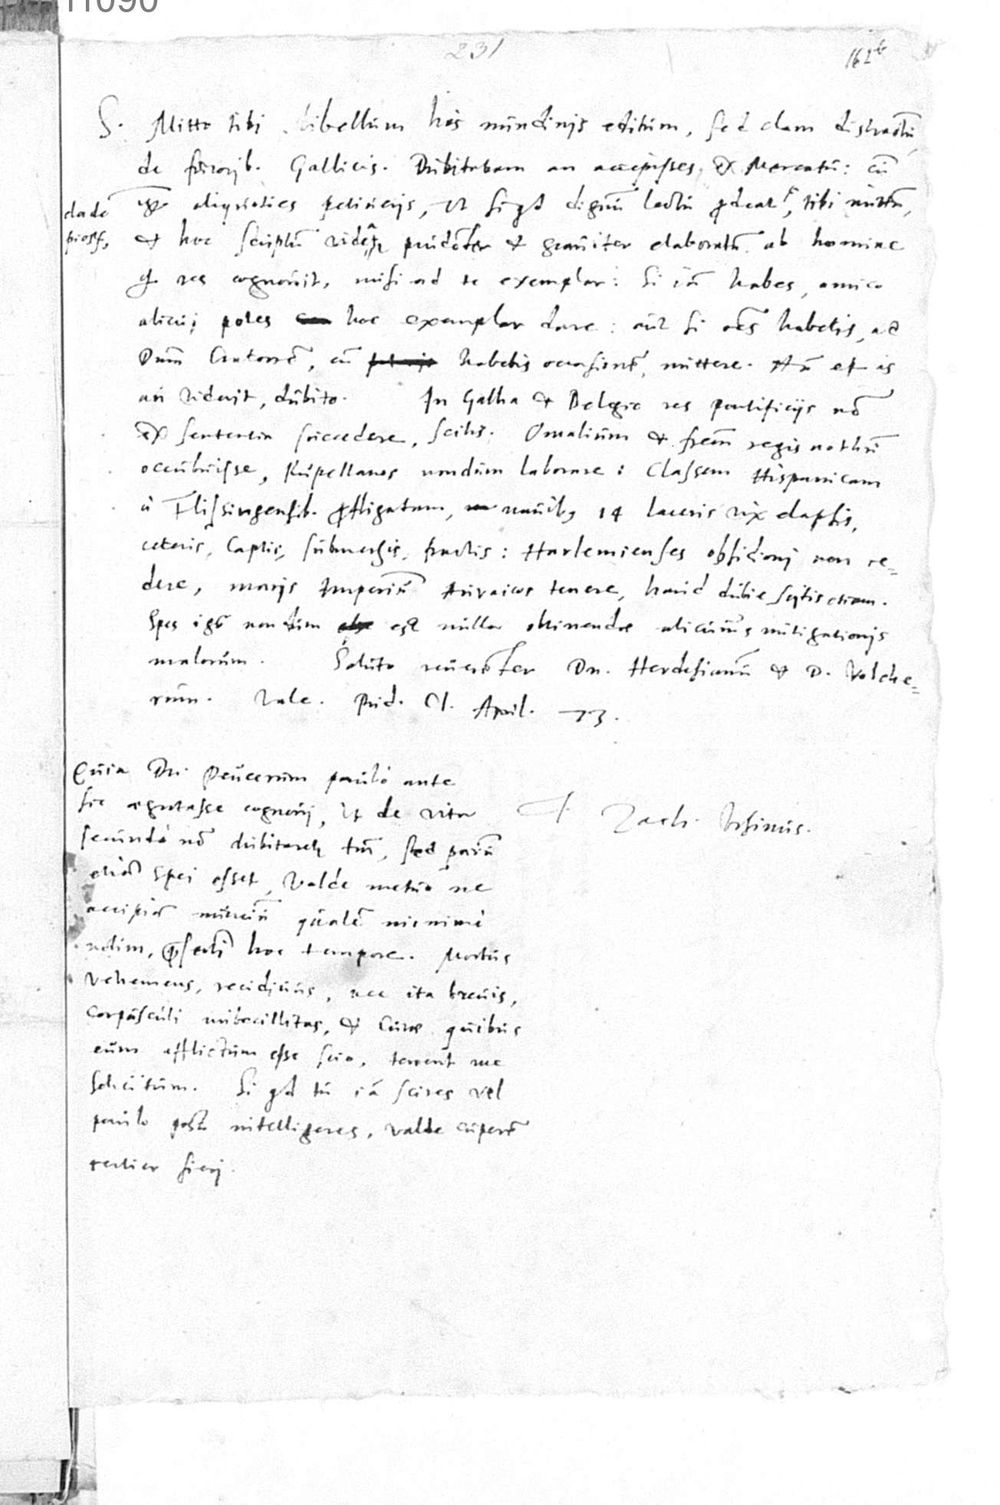 11090
231
162b
S. Mitto tibi libellum his nundinis editum, sed clam distractu,
de furorib. Gallicis. Dubitabam an accepisses ex Mercatu: cu
aliquoties petiveris, ut si qd dignu lectu prodeat, tibi mitta,
& hoc scriptu videat prudeter & graviter elaboratu ab homine
q res cognovit, misi ad te exemplar: Si ia habes, amico
alicui potes hoc exemplar dare: aut si oes habetis, ad
Dnm Cratone, cu habebis occasione, mittere. Na et is
an viderit, dubito. In Gallia & Belgio res pontificijs no
ex sententia succedere, scitis. Omalium & frem regis nothu
occubuisse, Rupellanos nondum laborare: Classem Hispanicam
a Flissingensib. profligatam, navibus 14 laceris vix elapsis,
ceteris, captis, submersis, fractis: Harlemienses obsidioni non ce-
dere, maris Imperiu Auraicos tenere, haud dubie scitis etiam.
Spes igr nondum est nulla obtinendae alicuius mitigationis
malorum. Saluto reverenter Dn. Herdesianu & D. Volche-
rum. Vale. Prid. Cl. April. 73.
T Zach. Ursinus.
Quia Dn. Peucerum paulo ante
sic aegrotasse cognovi, ut de vita
secunda no dubitaret tm, sed paru
etia spei esset, valde metuo ne
accipia nunciu quale minime
velim, prserti hoc tempore. Morbus
vehemens, recidivus, nec ita brevis,
corpusculi imbecillitas, & curae quibus
eum afflictum esse scio, tenent me
solicitum. Si qd tu ia scires vel
paulo post intelligeres, valde cupere
certior fieri.